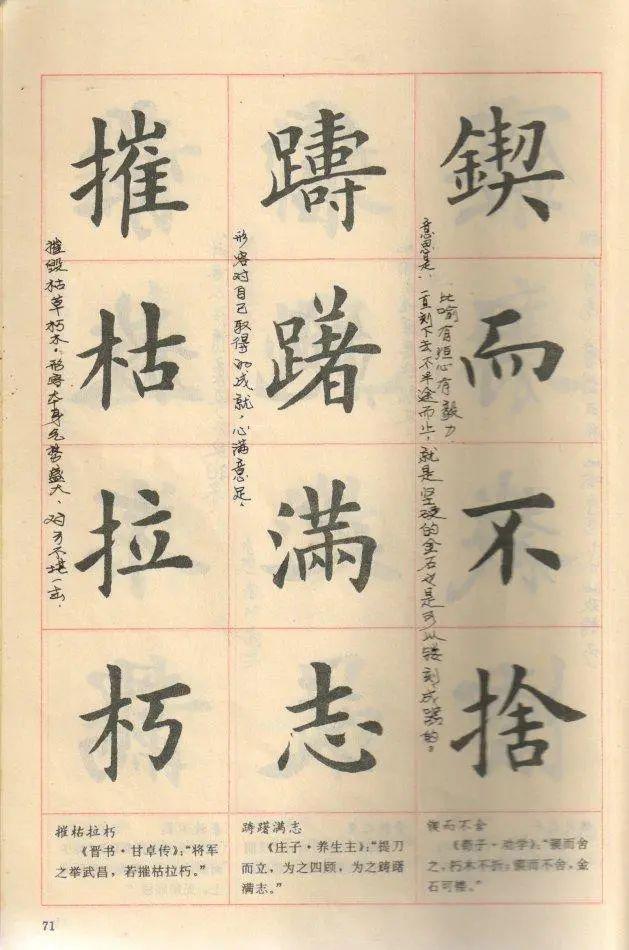 鍥而不捨
比喻有恒心有毅力
意思是,一直刻下去不半途而止,就是坚硬的金石也是可以镂刻成器的。
躊躇滿志
形容对自己取得的成就,心满意足。
摧枯拉朽
摧毁枯草朽木,形容本身气势盛大,对方不堪一击。
摧枯拉朽
《晋书·甘卓传》:“将军
之举武昌,若摧枯拉朽。”
踌躇满志
《庄子·养生主》:“提刀
而立,为之四顾,为之踌躇
满志。”
锲而不舍
《荀子·劝学》:“锲而舍
之,朽木不折;锲而不舍,金
石可镂。”
71